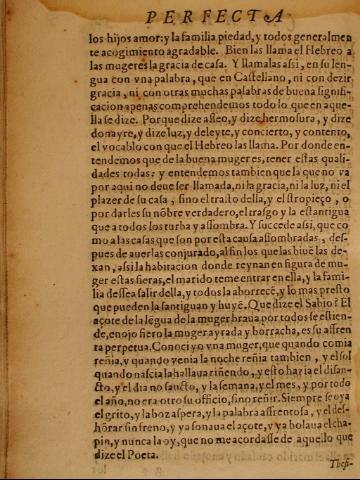 PERFECTA
los hijos amor: y la familia piedad, y todos generalmen
te acogimiento agradable. Bien las llama el Hebreo a
las mugeres la gracia de casa. Y llamalas assi, en su len-
gua con vna palabra, que en Castellano, ni con dezir
gracia, ni con otras muchas palabras de buena signifi-
cacion apenas comprehendemos todo lo que en aque-
lla se dize. Porque dize asseo, y dize hermosura, y dize
donayre, y dize luz, y deleyte, y concierto, y contento,
el vocablo con que el Hebreo las llama. Por donde en-
tendemos que de la buena muger es, tener estas quali-
dades todas: y entendemos tambien que la que no va
por aqui no deue ser llamada, ni la gracia, ni la luz, ni el
plazer de su casa, sino el trasto della, y el stropieço, o
por darles su nõbre verdadero, el trasgo y la estantigua
que a todos los turba y assombra. Y succede assi, que co
mo a las casas que son por esta causa assombradas, des-
pues de auerlas conjurado, al fin los que las biuẽ las de-
xan, assi la habitacion donde reynan en figura de mu-
ger estas fieras, el marido teme entrar en ella, y la fami-
lia dessea salir della, y todos la aborrecẽ, y lo mas presto
que pueden la santiguan y huyẽ. Que dize el Sabio? El
açote de la lẽgua de la muger braua por todos se estien-
de, enojo fiero la muger ayrada y borracha, es su affren
ta perpetua. Conoci yo vna muger, que quando comia
reñia, y quando venia la noche reñia tambien, y el sol
quando nascia la hallaua riñendo, y esto hazia el disan-
cto, y el dia no sancto, y la semana, y el mes, y por todo
el año, no era otro su officio, sino reñir. Siempre se oya
el grito, y la boz aspera, y la palabra affrentosa, y el des-
hõrar sin freno, y ya sonaua el açote, y ya bolaua el cha-
pin, y nunca la oy, que no me acordasse de aquello que
dize el Poeta.
Thesi-